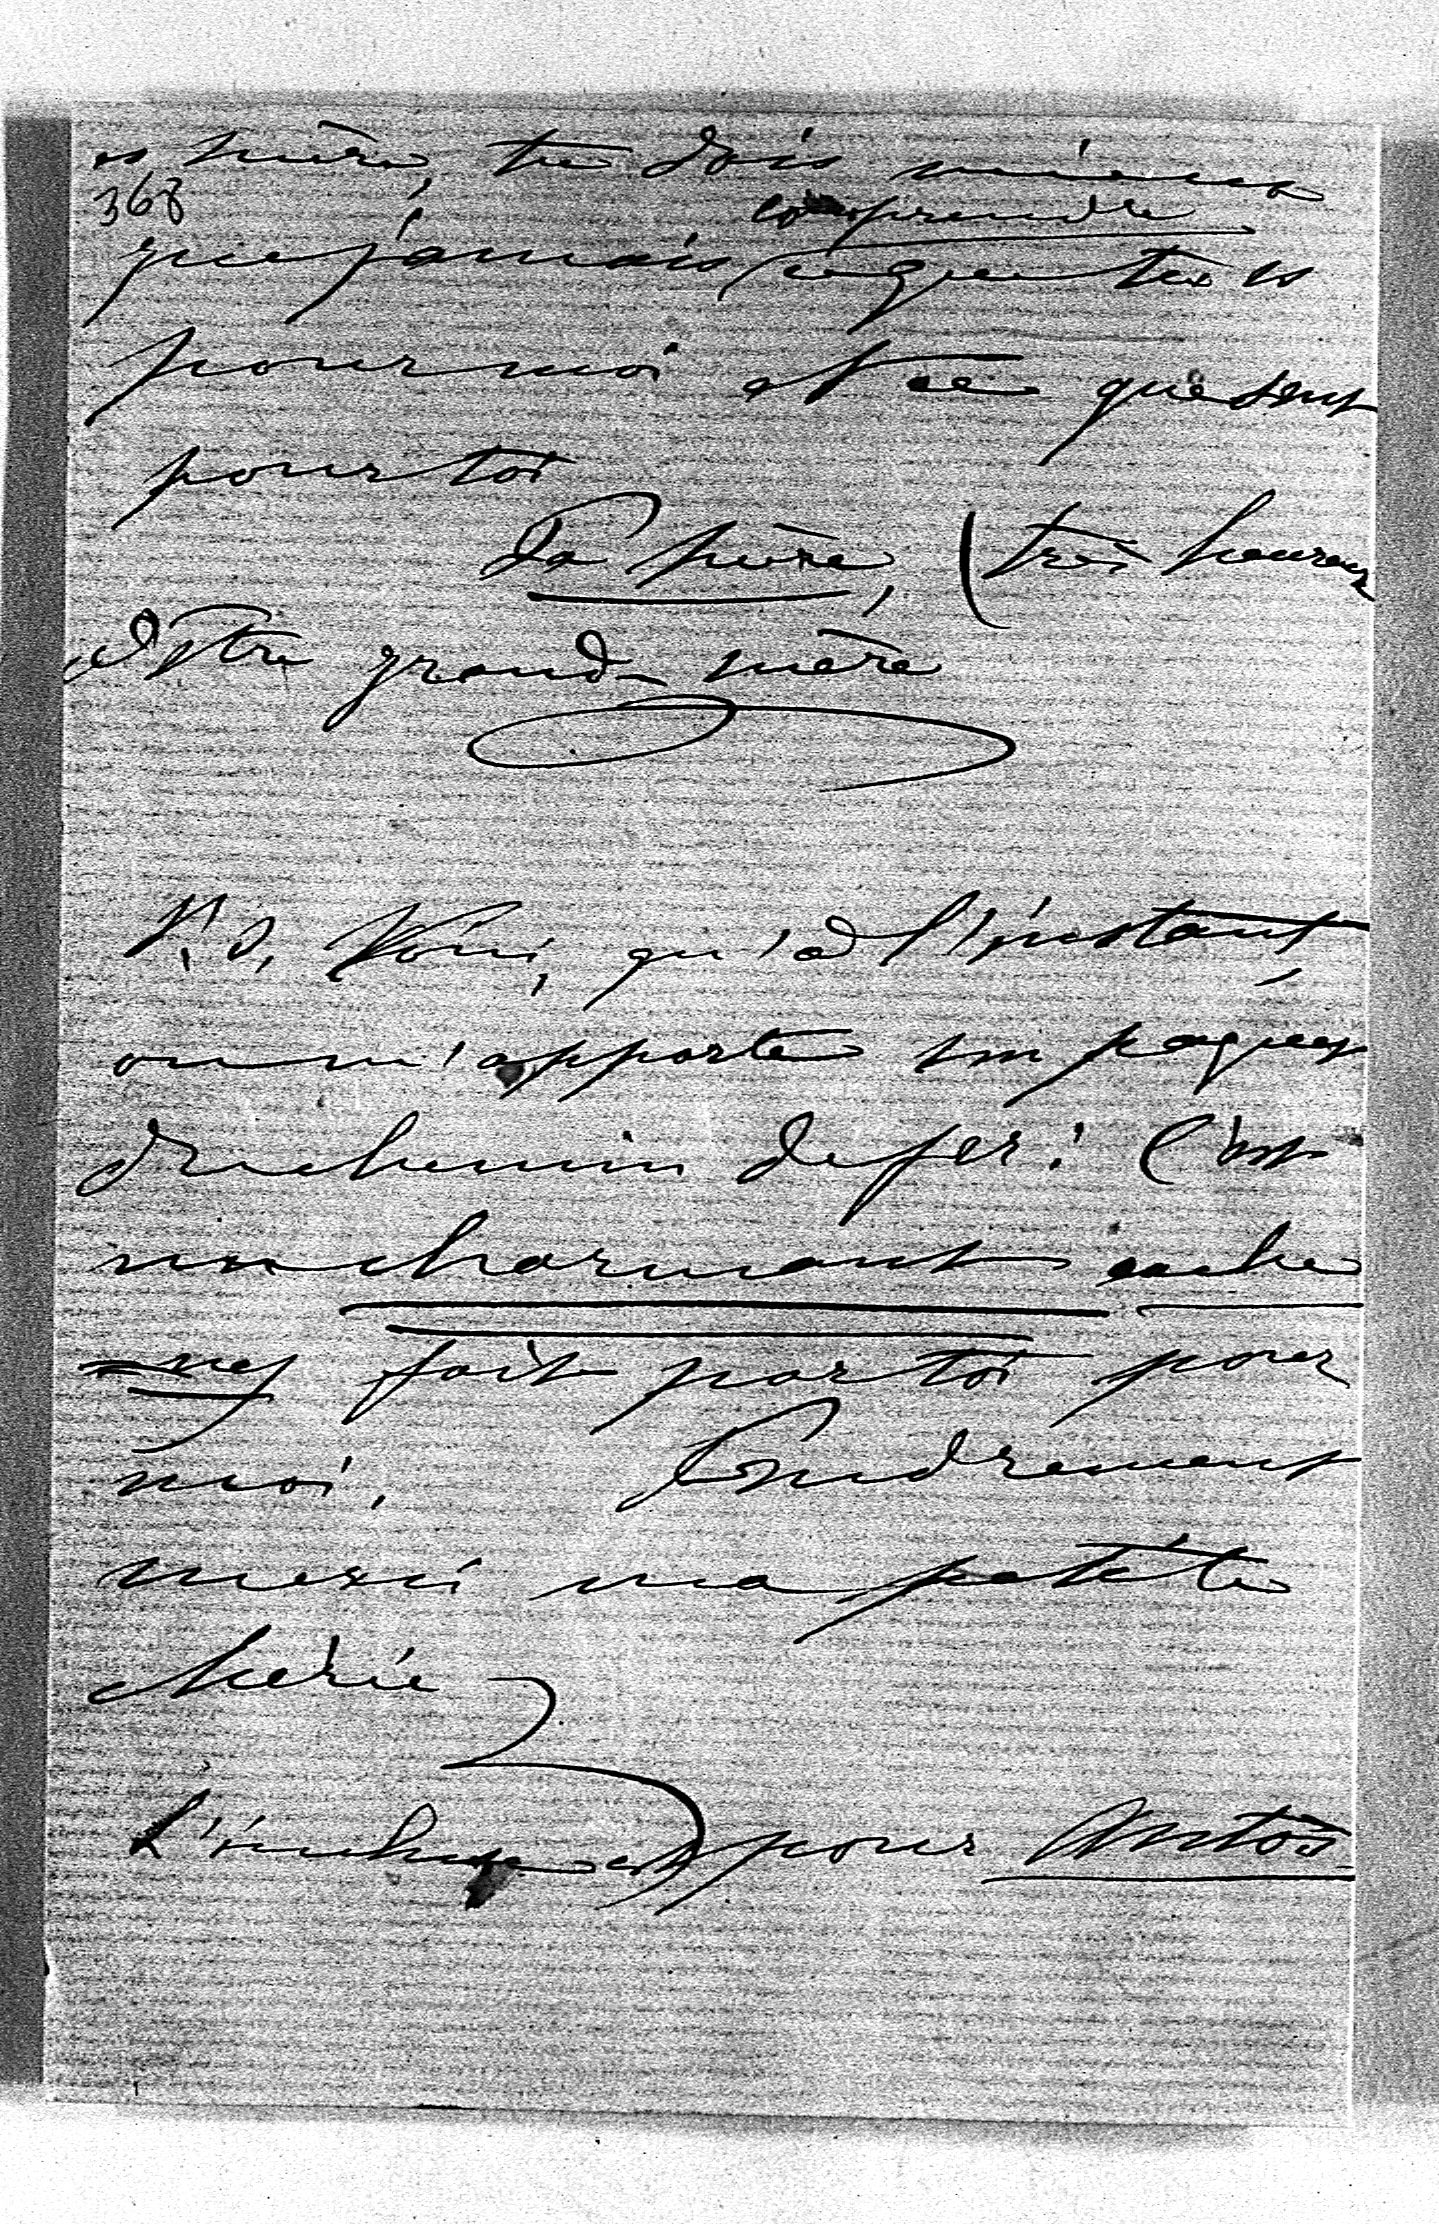 es mère, tu dois mieux
368
comprendre
que jamais ce que tu es
pour moi et ce que sent
pour toi
Ta mère, (très heureuse
d'être grand-mère
P.S. Voici, qu'à l'instant,
on m'apporte un paquet
du chemin de fer! C'est
un charmant cache
=nez fait par toi pour
moi. Tendrement
merci ma petite
chérie
L'incluse est pour Antos